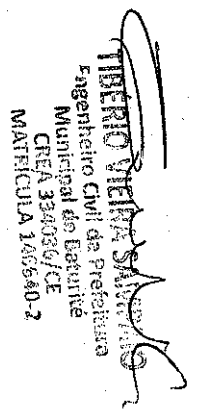 TIBÉRIO VIEIRA SAMPAIO
Engenheiro Civil da Prefeitura
Municipal de Baturité
CREA 334036/CE
MATRÍCULA 146640-2